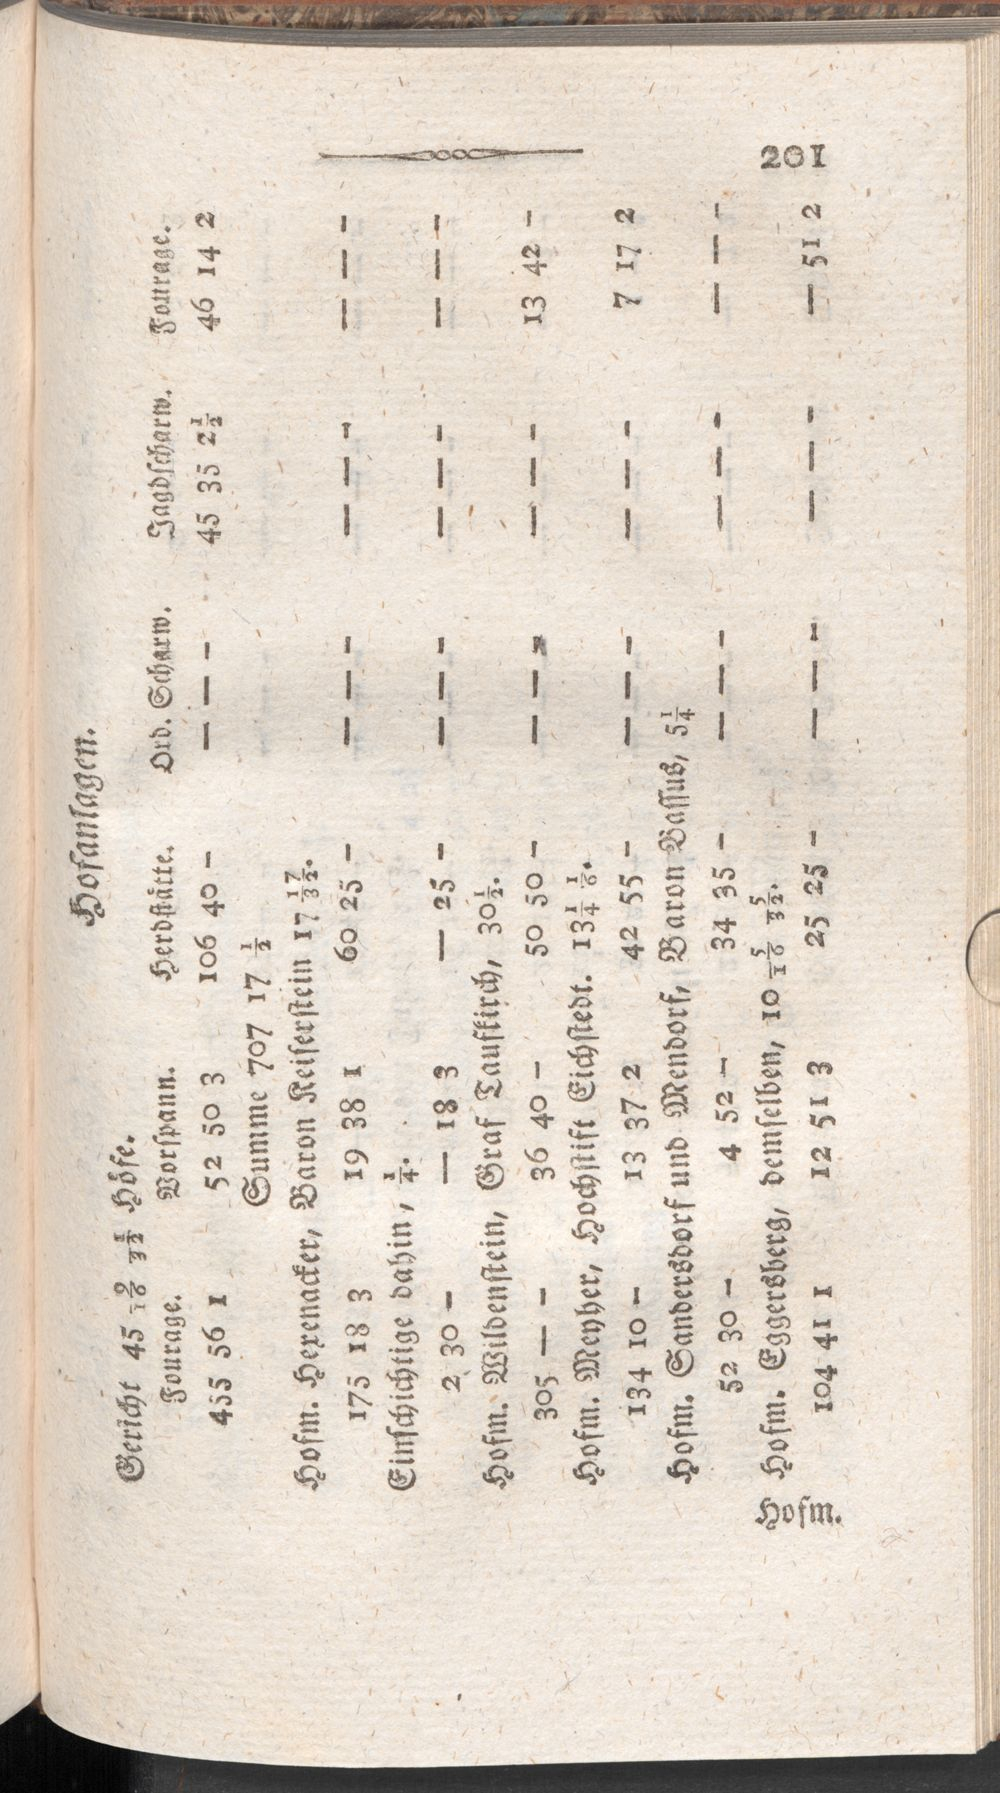 201
Hofanlagen.
Gericht 45 9/16 1/32 Höfe.
Fourage. Vorspann. Herdstätte. Ord. Scharw. Jagdscharw. Fourage.
455 56 1 52 50 3 106 40 — — — — 45 35 2½ 46 14 2
Summe 707 17 ½
Hofm. Hexenacker, Baron Keiserstein 17 17/32.
175 18 3 19 38 1 60 25 — — — — — — — — — —
Einschichtige dahin, ¼.
2 30 — — 18 3 — 25 — — — — — — — — — —
Hofm. Wildenstein, Graf Taufkirch, 30½.
305 — — 36 40 — 50 50 — — — — — — — 13 42 —
Hofm. Meyher, Hochstift Eichstedt. 13¼ 1/16.
134 10 — 13 37 2 42 55 — — — — — — — 7 17 2
Hofm. Sandersdorf und Mendorf, Baron Bassus, 5¼
52 30 — 4 52 — 34 35 — — — — — — — — — —
Hofm. Eggersberg, demselben, 10 5/16 5/32.
104 41 1 12 51 3 25 25 — — — — — — — — 51 2
Hofm.